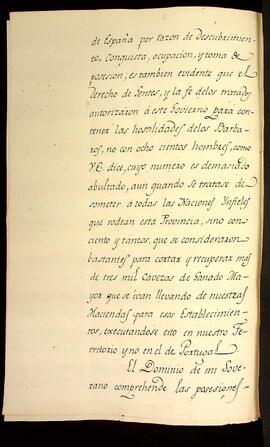 de España por razon de descubrimien-
to, Conquista, ocupacion, y toma de
posesion; es tambien evidente que el
derecho de Gentes, y la fe de los tratados
autorizaron á este Govierno para con-
tener las hostilidades delos Barba-
ros, no con ocho cientos hombres, como
V.E. dice, cuyo numero es demasiado
abultado, aun quando se tratase de
someter á todas las Naciones Infieles
que rodean esta Provincia, sino con
ciento y tantos, que se consideraron
bastantes para cortar y recuperar mas
de tres mil Cavezas de Ganado Ma-
yor que se ivan llevando de nuestras
Haciendas para esos Establecimien-
tos, executandose esto en nuestro Te-
rritorio y no en el de Portugal
El Dominio de mi Sove-
rano comprehende las posesiones-